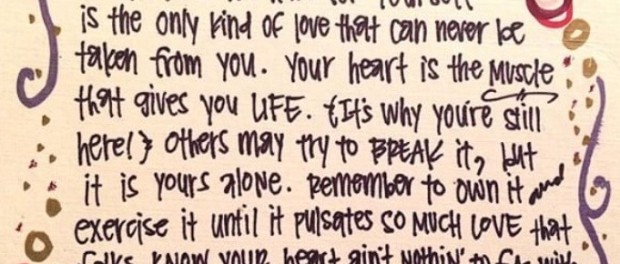 for yourself
is the only kind of love that can never be
taken from you. Your heart is the Muscle
that gives you LIFE. {It's why you're still
here!} Others may try to BREAK it, but
it is yours alone. Remember to own it and
exercise it until it pulsates SO MUCH LOVE that
folks know your heart ain't nothin' to f** with